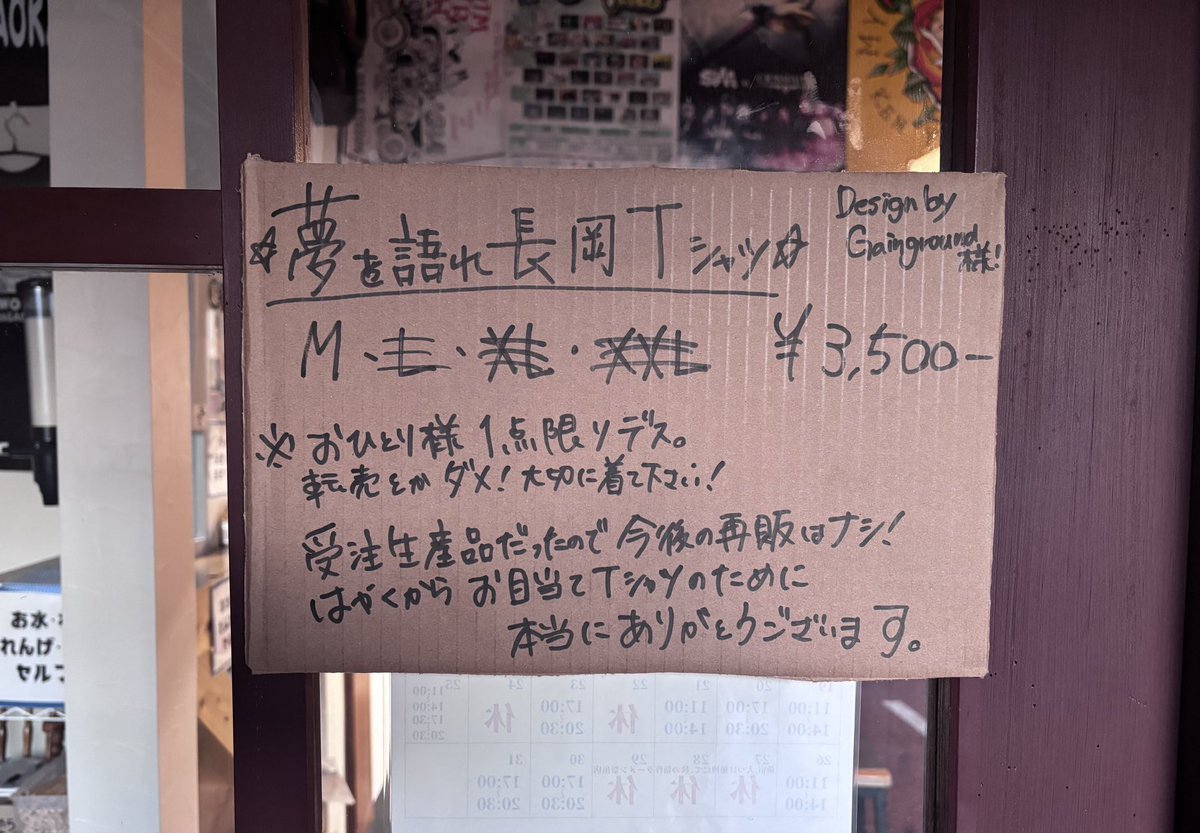 ☆夢を語れ長岡Tシャツ☆
Design by
Gainground
様!
M、L・XL・XXL ¥3,500-
※おひとり様1点限りデス。
転売とかダメ!大切に着て下さい!
受注生産品だったので今後の再販はナシ!
はやくからお目当てTシャツのために
本当にありがとうございます。
お水・
れんげ・
セルフ
25 24 23 22 21 20 19
11:00 休 17:00 休 11:00 17:00 11:00
14:00 20:30 14:00 20:30 14:00
17:30
20:30
31 30 29 28 27 26
17:00 17:00 休 休 休 11:00
20:30 20:30 14:00